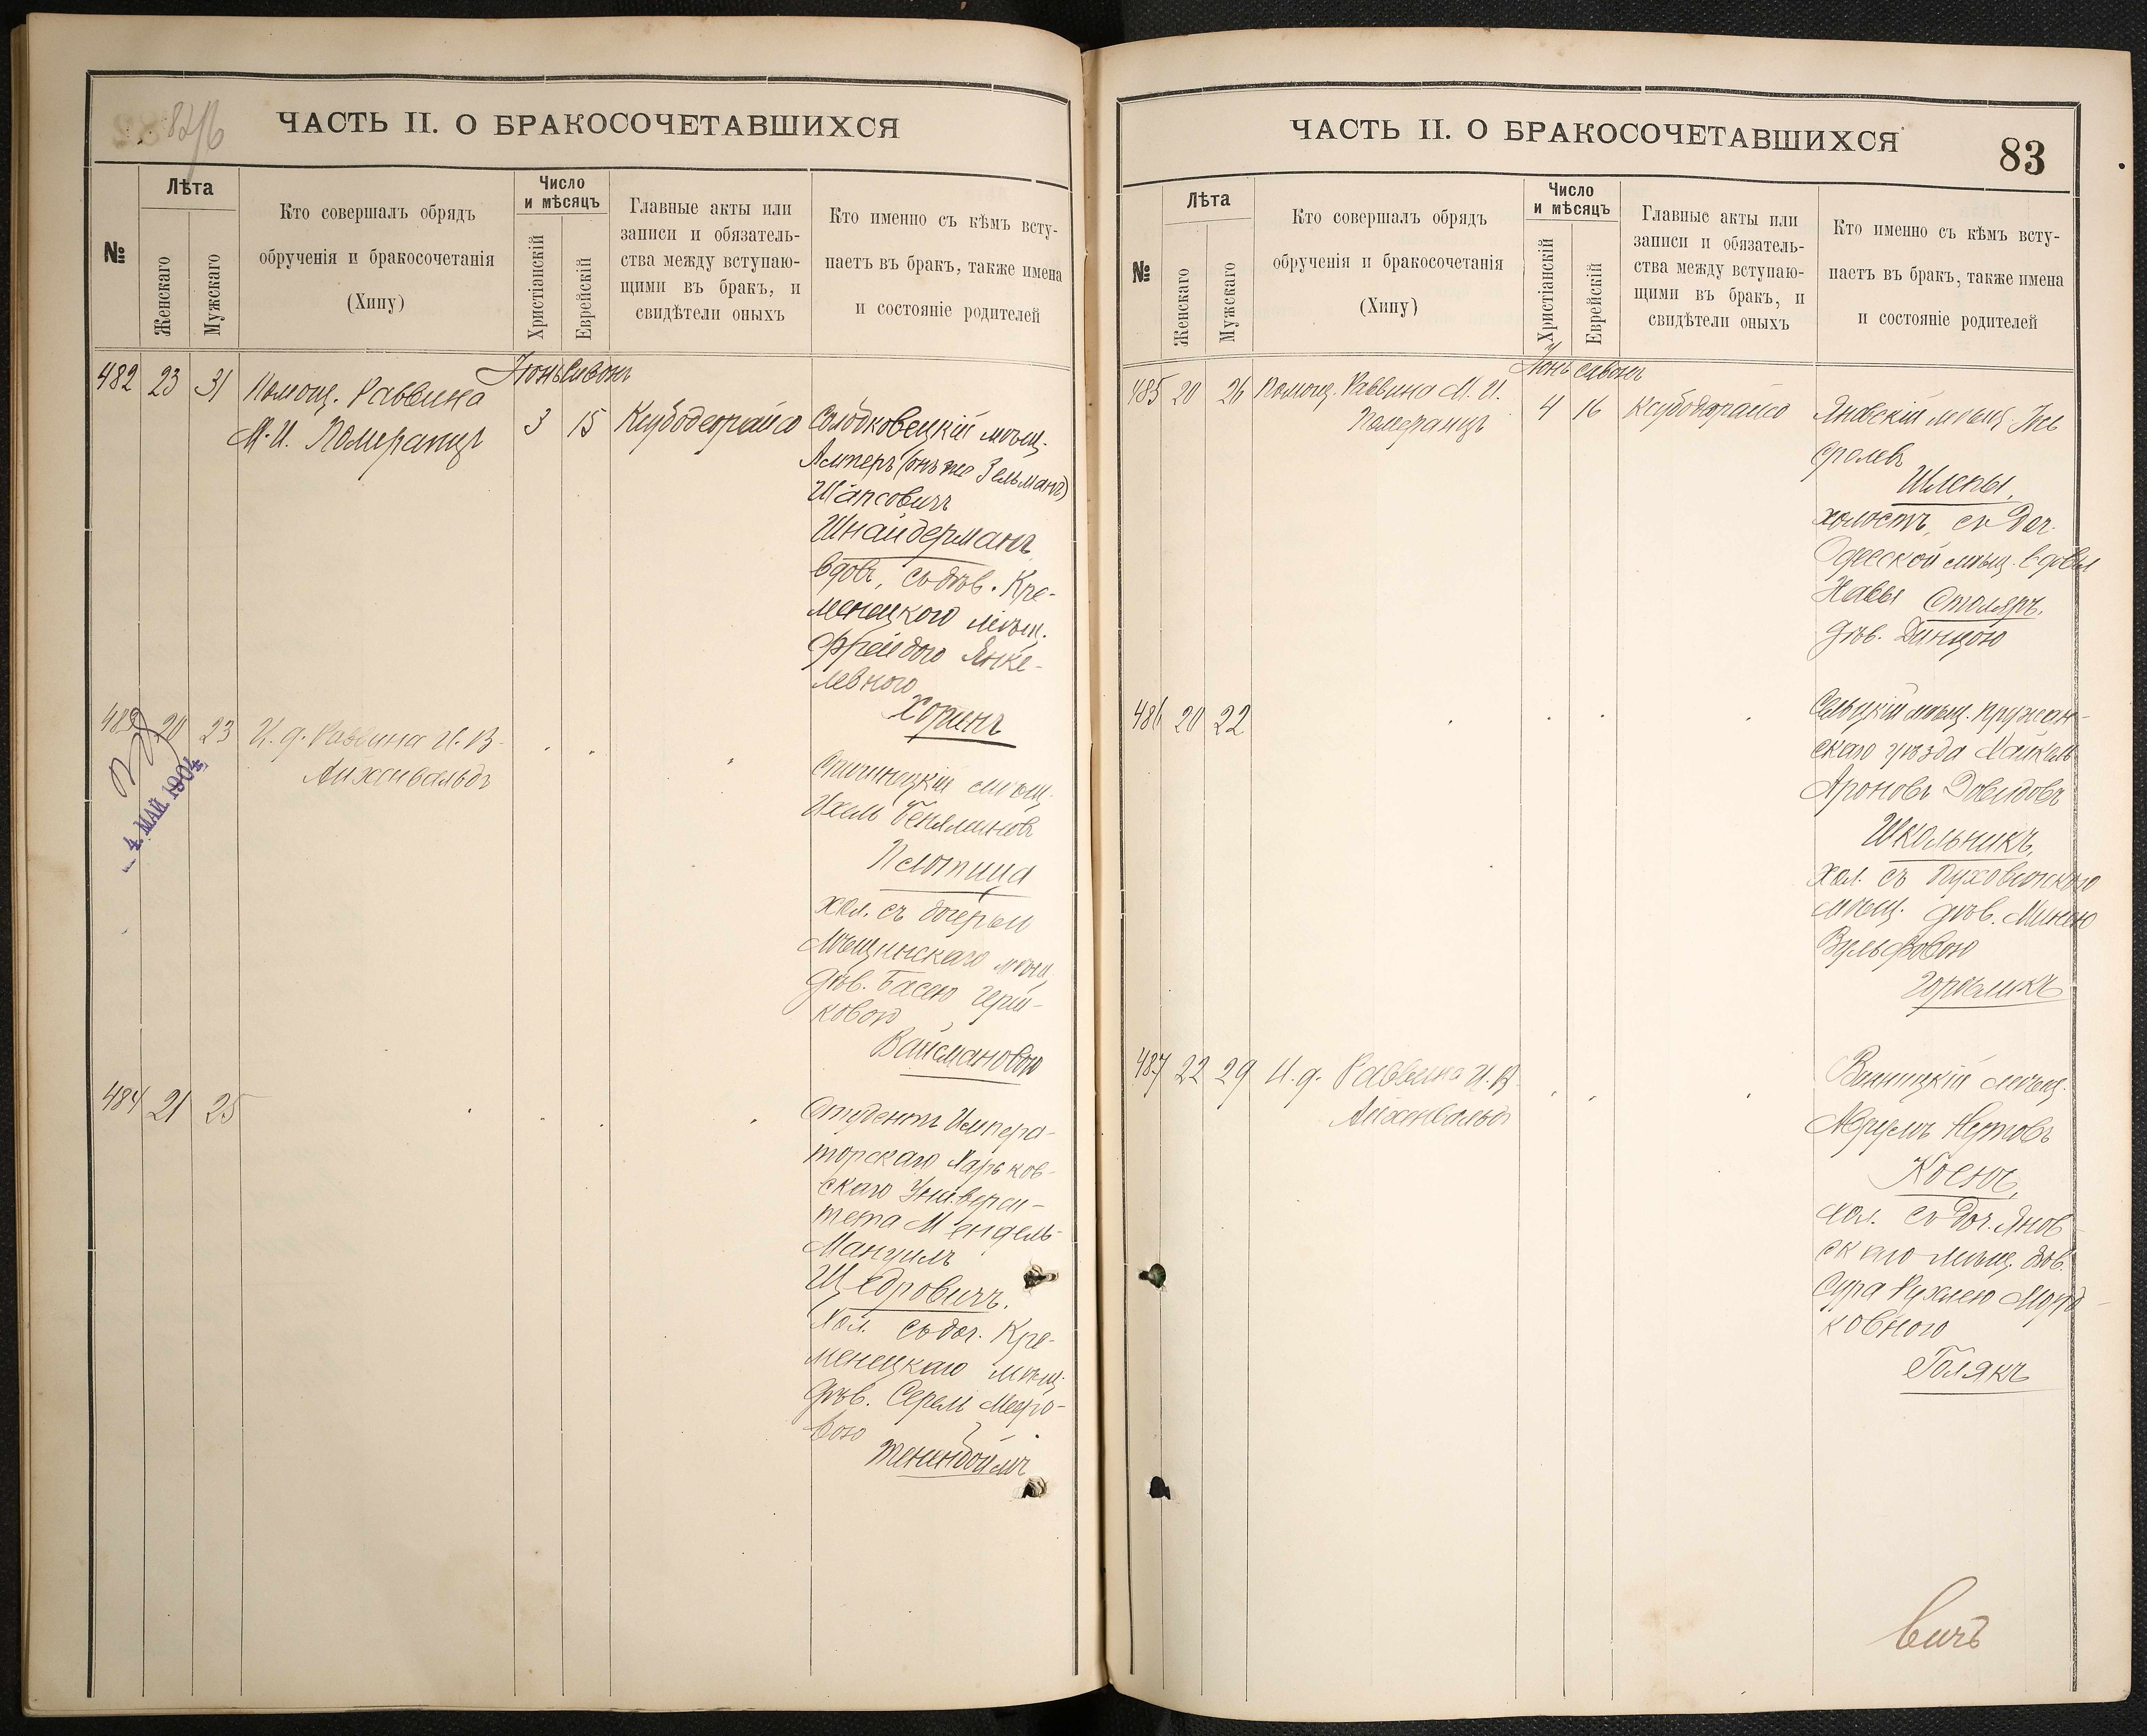 82/б
ЧАСТЬ II. О БРАКОСОЧЕТАВШИХСЯ
№
Лѣта
Женскаго
Мужскаго
Кто совершалъ обрядъ
обрученія и бракосочетанія
(Хипу)
Число
и мѣсяцъ
Христіанскій
Еврейскій
Главные акты или
записи и обязатель-
ства между вступаю-
щими въ бракъ, и
свидѣтели оныхъ
Кто именно съ кѣмъ всту-
паетъ въ бракъ, также имена
и состояніе родителей
482 23 31 Помощ. Раввина
М. И. Померанцъ
Іюнь Сивонъ
3 15
Ксубодеорайсо
Солодковецкій мѣщ.
(онъ же Зельманъ)
Шапсовичъ
Шнайдерманъ
вдов., съ дѣв. Кре-
менецкого мѣщ.
Фрейдою Янке-
левною
Хоринъ
483 20 23 И. д. Раввина И. В.
Айхенвальдъ
4 МАЙ 1904
мѣщ.
Беньяминовъ
Плотица
хол. съ дочерью
мѣщ.
дѣв. Басею Герш-
ковою
Вайсмановою
484 21 25
Студентъ Импера-
торскаго Харьков-
скаго Универси-
тета Мендель-
Мануилъ
Щедровичъ.
Хол. съ доч. Кре-
менецкаго мѣщ.
дѣв. Мееро-
вою
Тененбоймъ
ЧАСТЬ II. О БРАКОСОЧЕТАВШИХСЯ
83
№
Лѣта
Женскаго
Мужскаго
Кто совершалъ обрядъ
обрученія и бракосочетанія
(Хипу)
Число
и мѣсяцъ
Христіанскій
Еврейскій
Главные акты или
записи и обязатель-
ства между вступаю-
щими въ бракъ, и
свидѣтели оныхъ
Кто именно съ кѣмъ всту-
паетъ въ бракъ, также имена
и состояніе родителей
485 20 26 Помощ. Раввина М. И.
Померанцъ
Іюнь Сивонъ
4 16
Ксубодеорайсо
Яновскій мѣщ.
Шлепы,
холостъ, съ доч.
Одесской мѣщ. вдовы
Хавы Столяръ,
дѣв. Динцою
486 20 22
Сельцкій мѣщ. Пружан-
скаго уѣзда Хайкель
Ароновъ Довидовъ
Школьникъ,
хол. съ Пуховичскою
мѣщ. дѣв. Минею
Вульфовою
Горѣликъ
487 22 29 И. д. Раввина И. В.
Айхенвальдъ
мѣщ.
Аврумъ Нутовъ
Косюкъ,
хол. съ доч. Янов-
скаго мѣщ. дѣв.
Сура Рухлею Морд-
ковною
Голякъ
вичъ